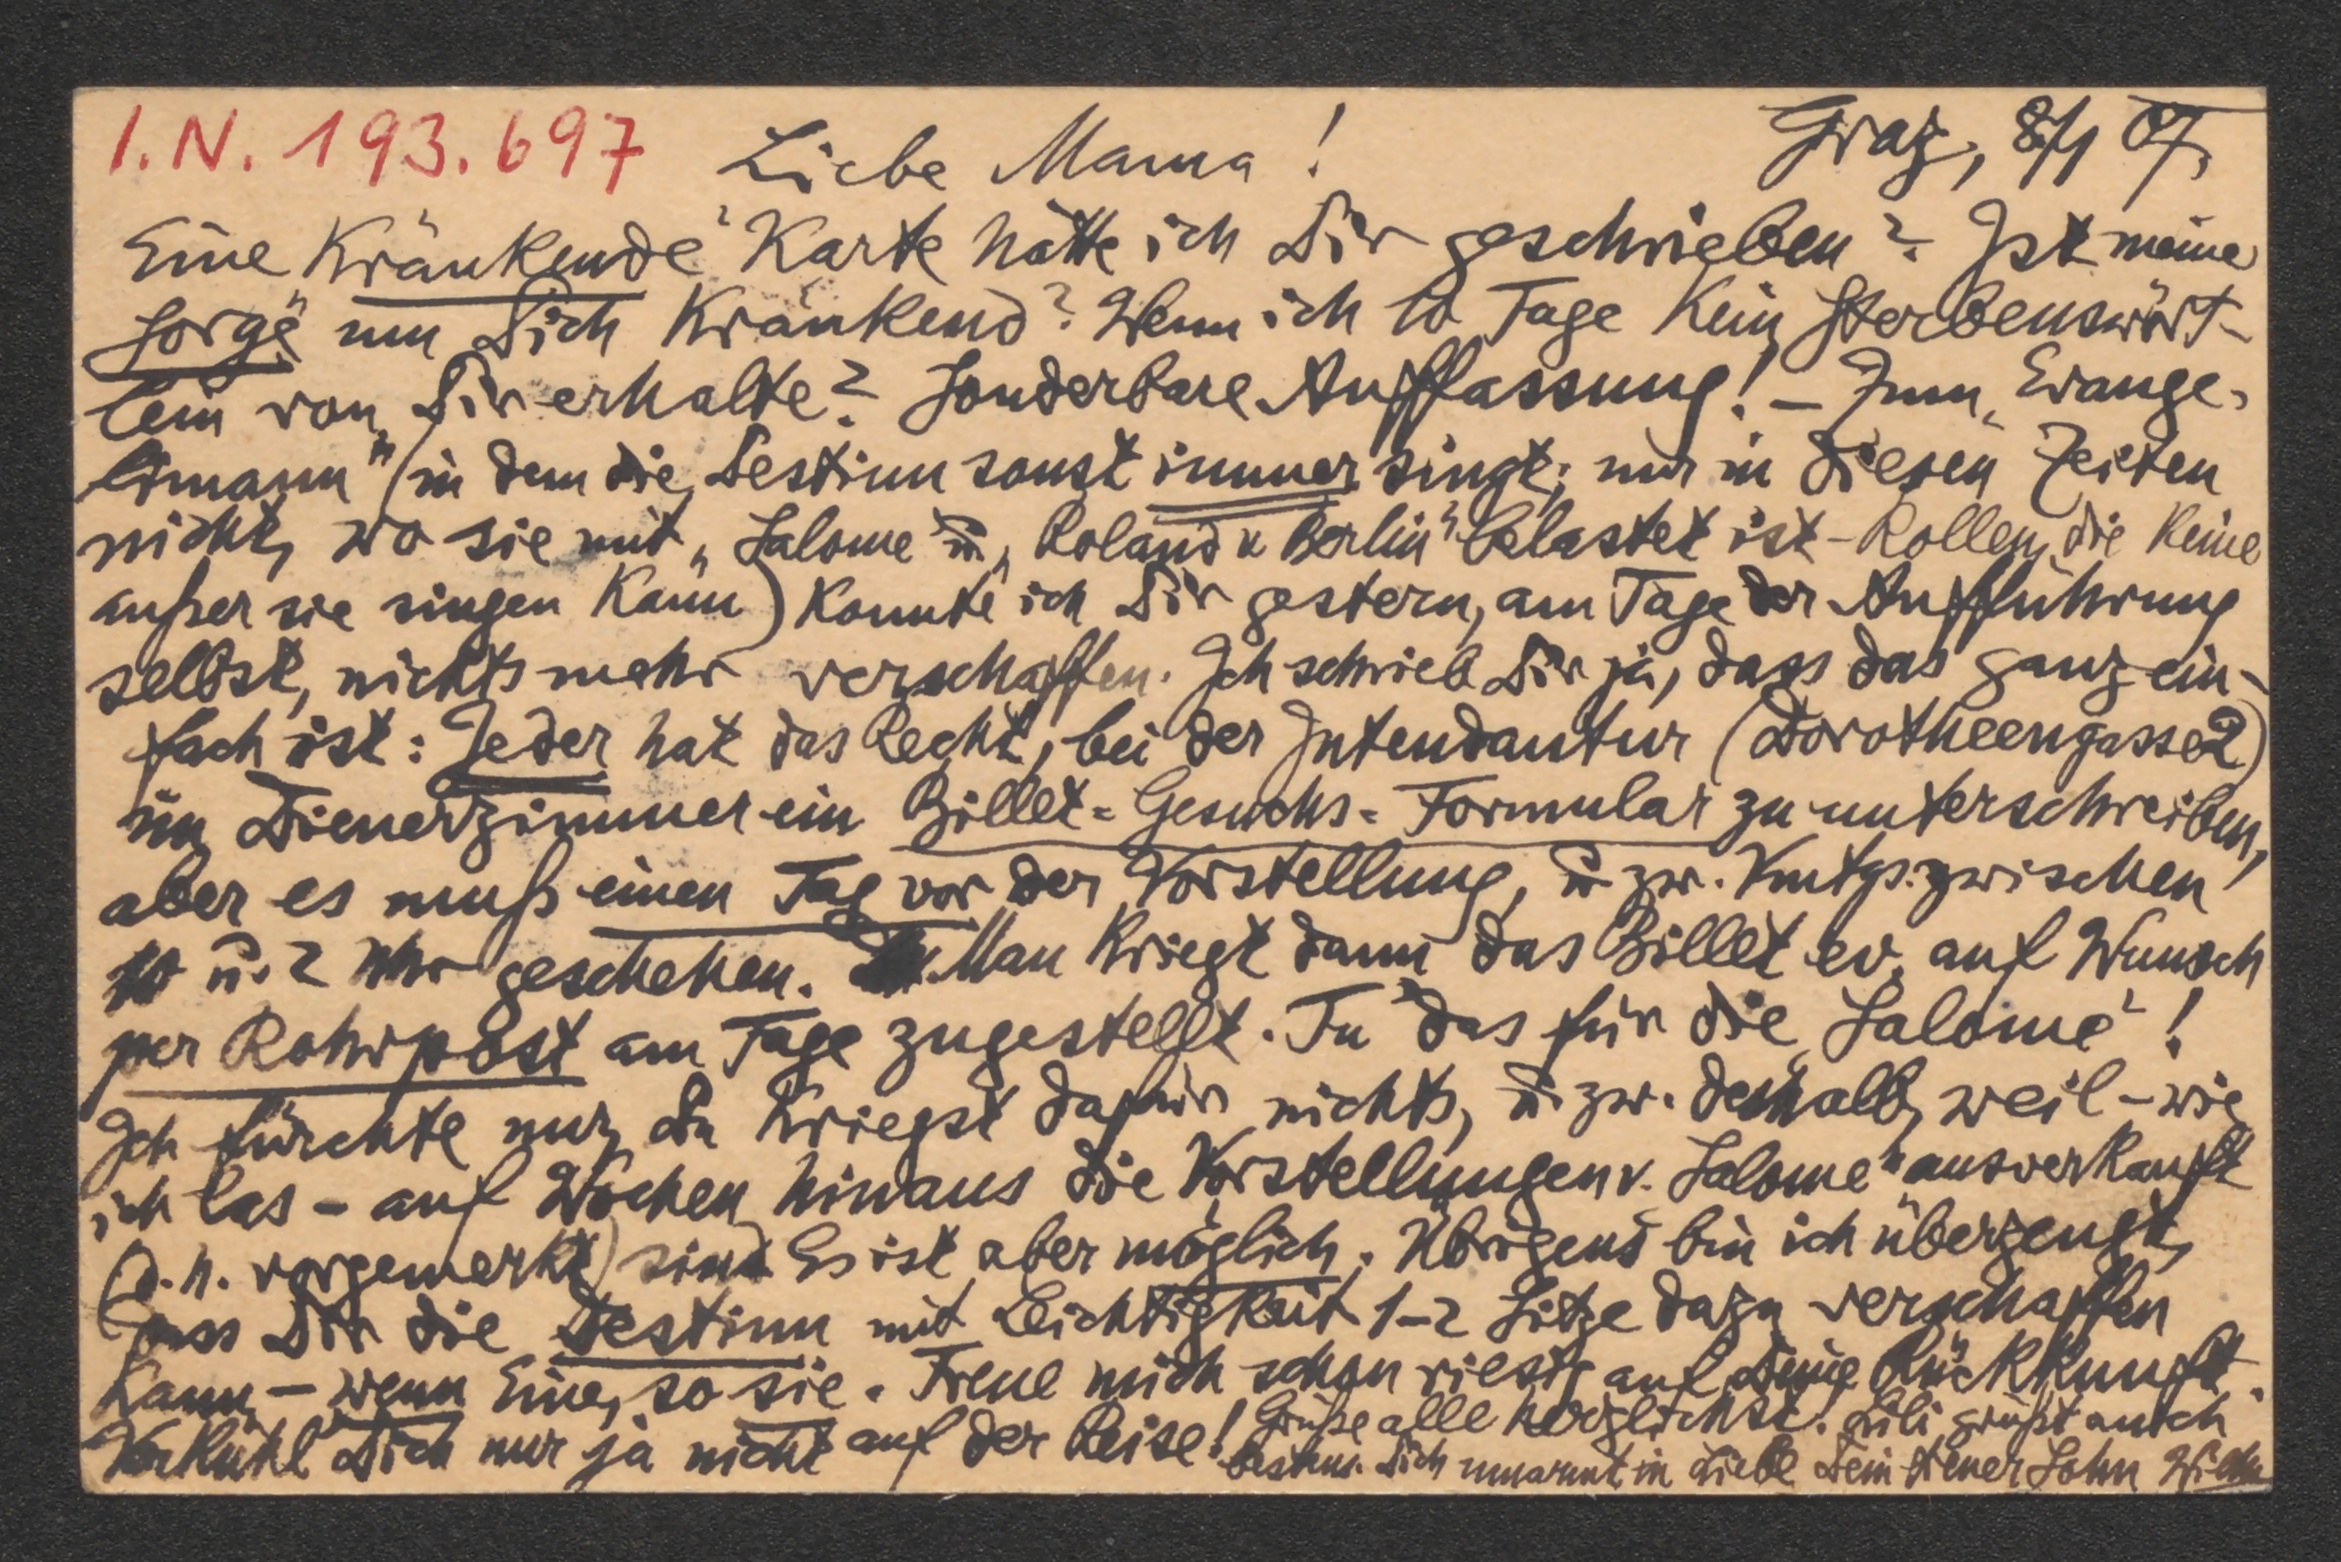 I.N. 193.697
Liebe Mama!
Graz, 8/1 07.
Eine „Kränkende" Karte hätte ich Dir geschrieben? Ist meine
Sorge um Dich Kränkend? Wenn ich 10 Tage Kein Sterbenswört-
lein von Dir erhalte? Sonderbare Auffassung! – Zum „Evange-
limann" (in dem die Destinn sonst immer singt; nur in diesen Zeiten
nicht, wo sie mit „Salome" u. „Roland v Berlin" belastet ist – Rollen, die Keine
außer sie singen Kann) Konnte ich Dir gestern, am Tage der Aufführung
selbst, nichts mehr verschaffen. Ich schrieb Dir ja, dass das ganz ein-
fach ist: Jeder hat das Recht, bei der Intendantur (Dorotheengasse 2)
im Dienerzimmer ein Billet-Gesuchs-Formular zu unterschreiben,
aber es muß einen Tag vor der Vorstellung, u. zw. Vmtgs. zwischen
10 u. 2 Uhr geschehen. Man Kriegt dann das Billet ev. auf Wunsch
per Rohrpost am Tage zugestellt. Tu das für die „Salome"!
Ich fürchte nur, Du Kriegst dafür nichts, u. zw. deshalb, weil – wie
ich las – auf Wochen hinaus die Vorstellungen v. „Salome" ausverkauft
(d. h. vorgemerkt) sind. Es ist aber möglich. Übrigens bin ich überzeugt,
dass Dir die Destinn mit Leichtigkeit 1–2 Sitze dazu verschaffen
Kann – wenn Eine, so sie. Freue mich schon riesig auf Deine Rückkunft.
Verkühl Dich nur ja nicht auf der Reise! Grüße alle herzlichst. Lili grüßt auch
bestens. Dich umarmt in Liebe Dein treuer Sohn